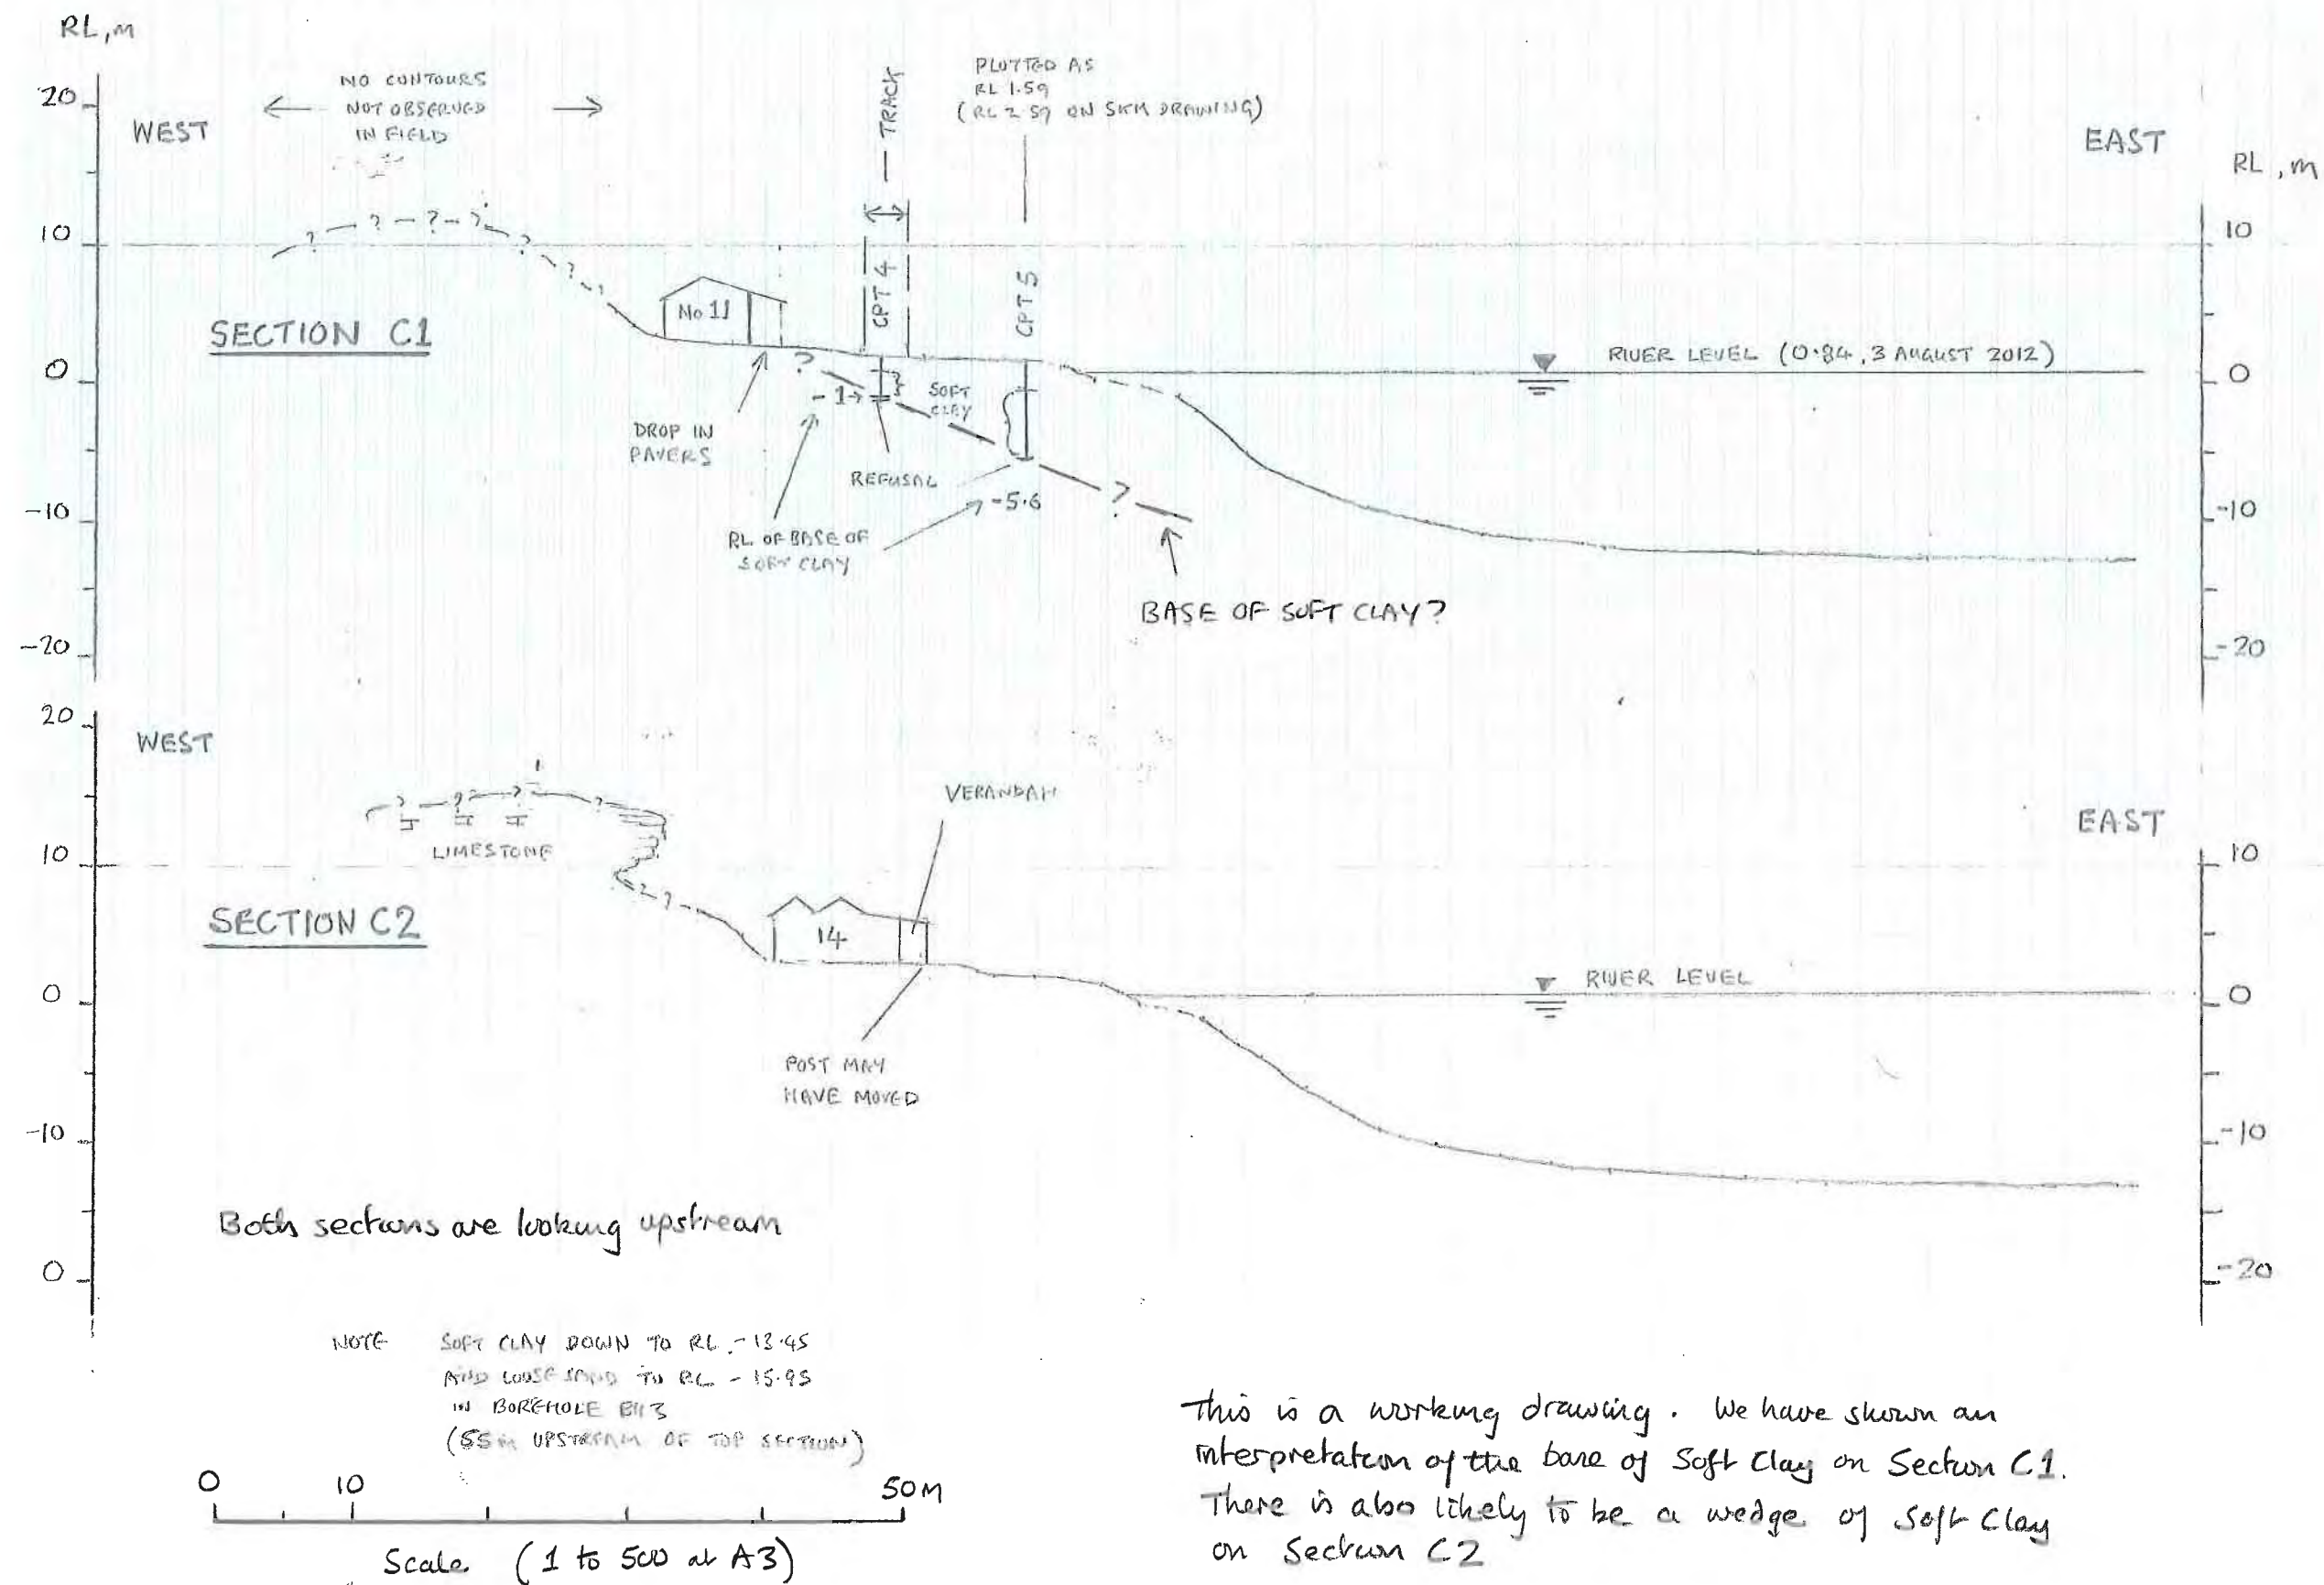 RL, m
20
10
0
-10
-20
WEST
NO CONTOURS
NOT OBSERVED
IN FIELD
TRACK
PLOTTED AS
RL 1.59
(RL 2.59 ON SKM DRAWING)
EAST
RL, m
10
0
-10
-20
? ? - ? - ? ? ?
SECTION C1
No 11
CPT 4
CPT 5
RIVER LEVEL (0.84, 3 AUGUST 2012)
?
-1
SOFT
CLAY
DROP IN
PAVERS
REFUSAL
-5.6
?
RL OF BASE OF
SOFT CLAY
BASE OF SOFT CLAY?
20
10
0
-10
0
WEST
VERANDAH
EAST
10
0
-10
-20
? ? ? ?
LIMESTONE
? ?
SECTION C2
14
RIVER LEVEL
POST MAY
HAVE MOVED
Both sections are looking upstream
NOTE SOFT CLAY DOWN TO RL -13.45
AND LOOSE SAND TO RL -15.95
IN BOREHOLE BH3
(55m UPSTREAM OF TOP SECTION)
0 10 50M
Scale (1 to 500 at A3)
This is a working drawing. We have shown an
interpretation of the base of Soft Clay on Section C1.
There is also likely to be a wedge of Soft Clay
on Section C2